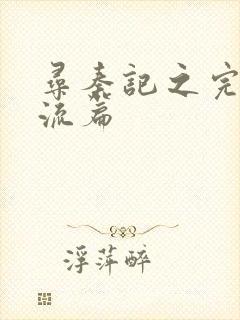 尋秦記之完
流篇
浮萍醉